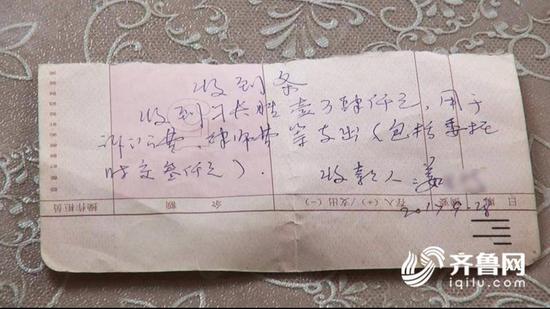 收到条
收到 长胜 壹万肆仟元，用于
诉讼费、律师费等支出（包括委托
时交叁仟元）．
收款人：姜
日 期 摘要 存入(+)/支出(-) 金 额 操作柜员
齐鲁网
iqilu.com